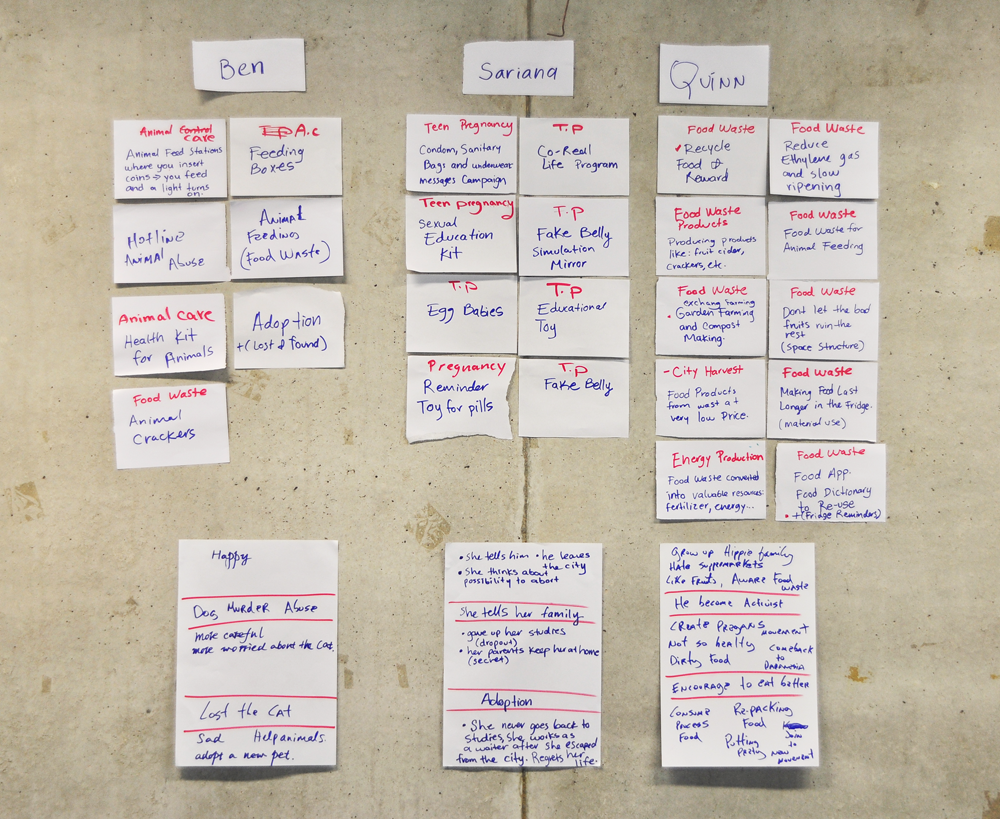 Ben
Animal Control
care
Animal Feed Stations
where you insert
coins → you feed
and a light turns
on.
A.c
Feeding
Boxes
Hotline
Animal Abuse
Animal
Feedings
(Food Waste)
Animal care
Health Kit
for Animals
Adoption
+(Lost & found)
Food Waste
Animal
Crackers
Happy
Dog Murder Abuse
more careful
more worried about the Cat.
Lost the Cat
Sad Help animals.
adopt a new pet.
Sariana
Teen Pregnancy
Condom, Sanitary
Bags and underwear
messages Campaign
T.P
Co-Real
Life Program
Teen pregnancy
Sexual
Education
Kit
T.P
Fake Belly
Simulation
Mirror
T.P
Egg Babies
T.P
Educational
Toy
Pregnancy
Reminder
Toy for pills
T.P
Fake Belly
• She tells him • he leaves
the city
• She thinks about
possibility to abort
She tells her family
• gave up her studies
(dropout)
• her parents keep her at home
(secret)
Adoption
• She never goes back to
studies, she works as
a waiter after she escaped
from the city. Regrets her
life.
Quinn
Food Waste
Recycle
Food &
Reward
Food Waste
Reduce
Ethylene gas
and slow
ripening
Food Waste
Products
Producing products
like: fruit cider,
crackers, etc.
Food Waste
Food Waste for
Animal Feeding
Food Waste
exchang farming
• Garden Farming
and Compost
Making.
Food Waste
Dont let the bad
fruits ruin the
rest
(Space Structure)
- City Harvest
Food Products
from wast at
very low Price.
Food Waste
Making Food Last
Longer in the Fridge.
(material use)
Energy Production
Food Waste converted
into valuable resources:
fertilizer, energy...
Food Waste
Food App.
Food Dictionary
to Re-use
• +(Fridge Reminders)
Grow up Hippie family
Hate Suppermarkets
Like Fruits, Aware Food
Waste
He become Activist
Create
Movement
Not so healty
Dirty Food
Comeback
to
Encourage to eat better
Consume
Process
Food
Re-packing
Food
Putting
Join
to
new
movement